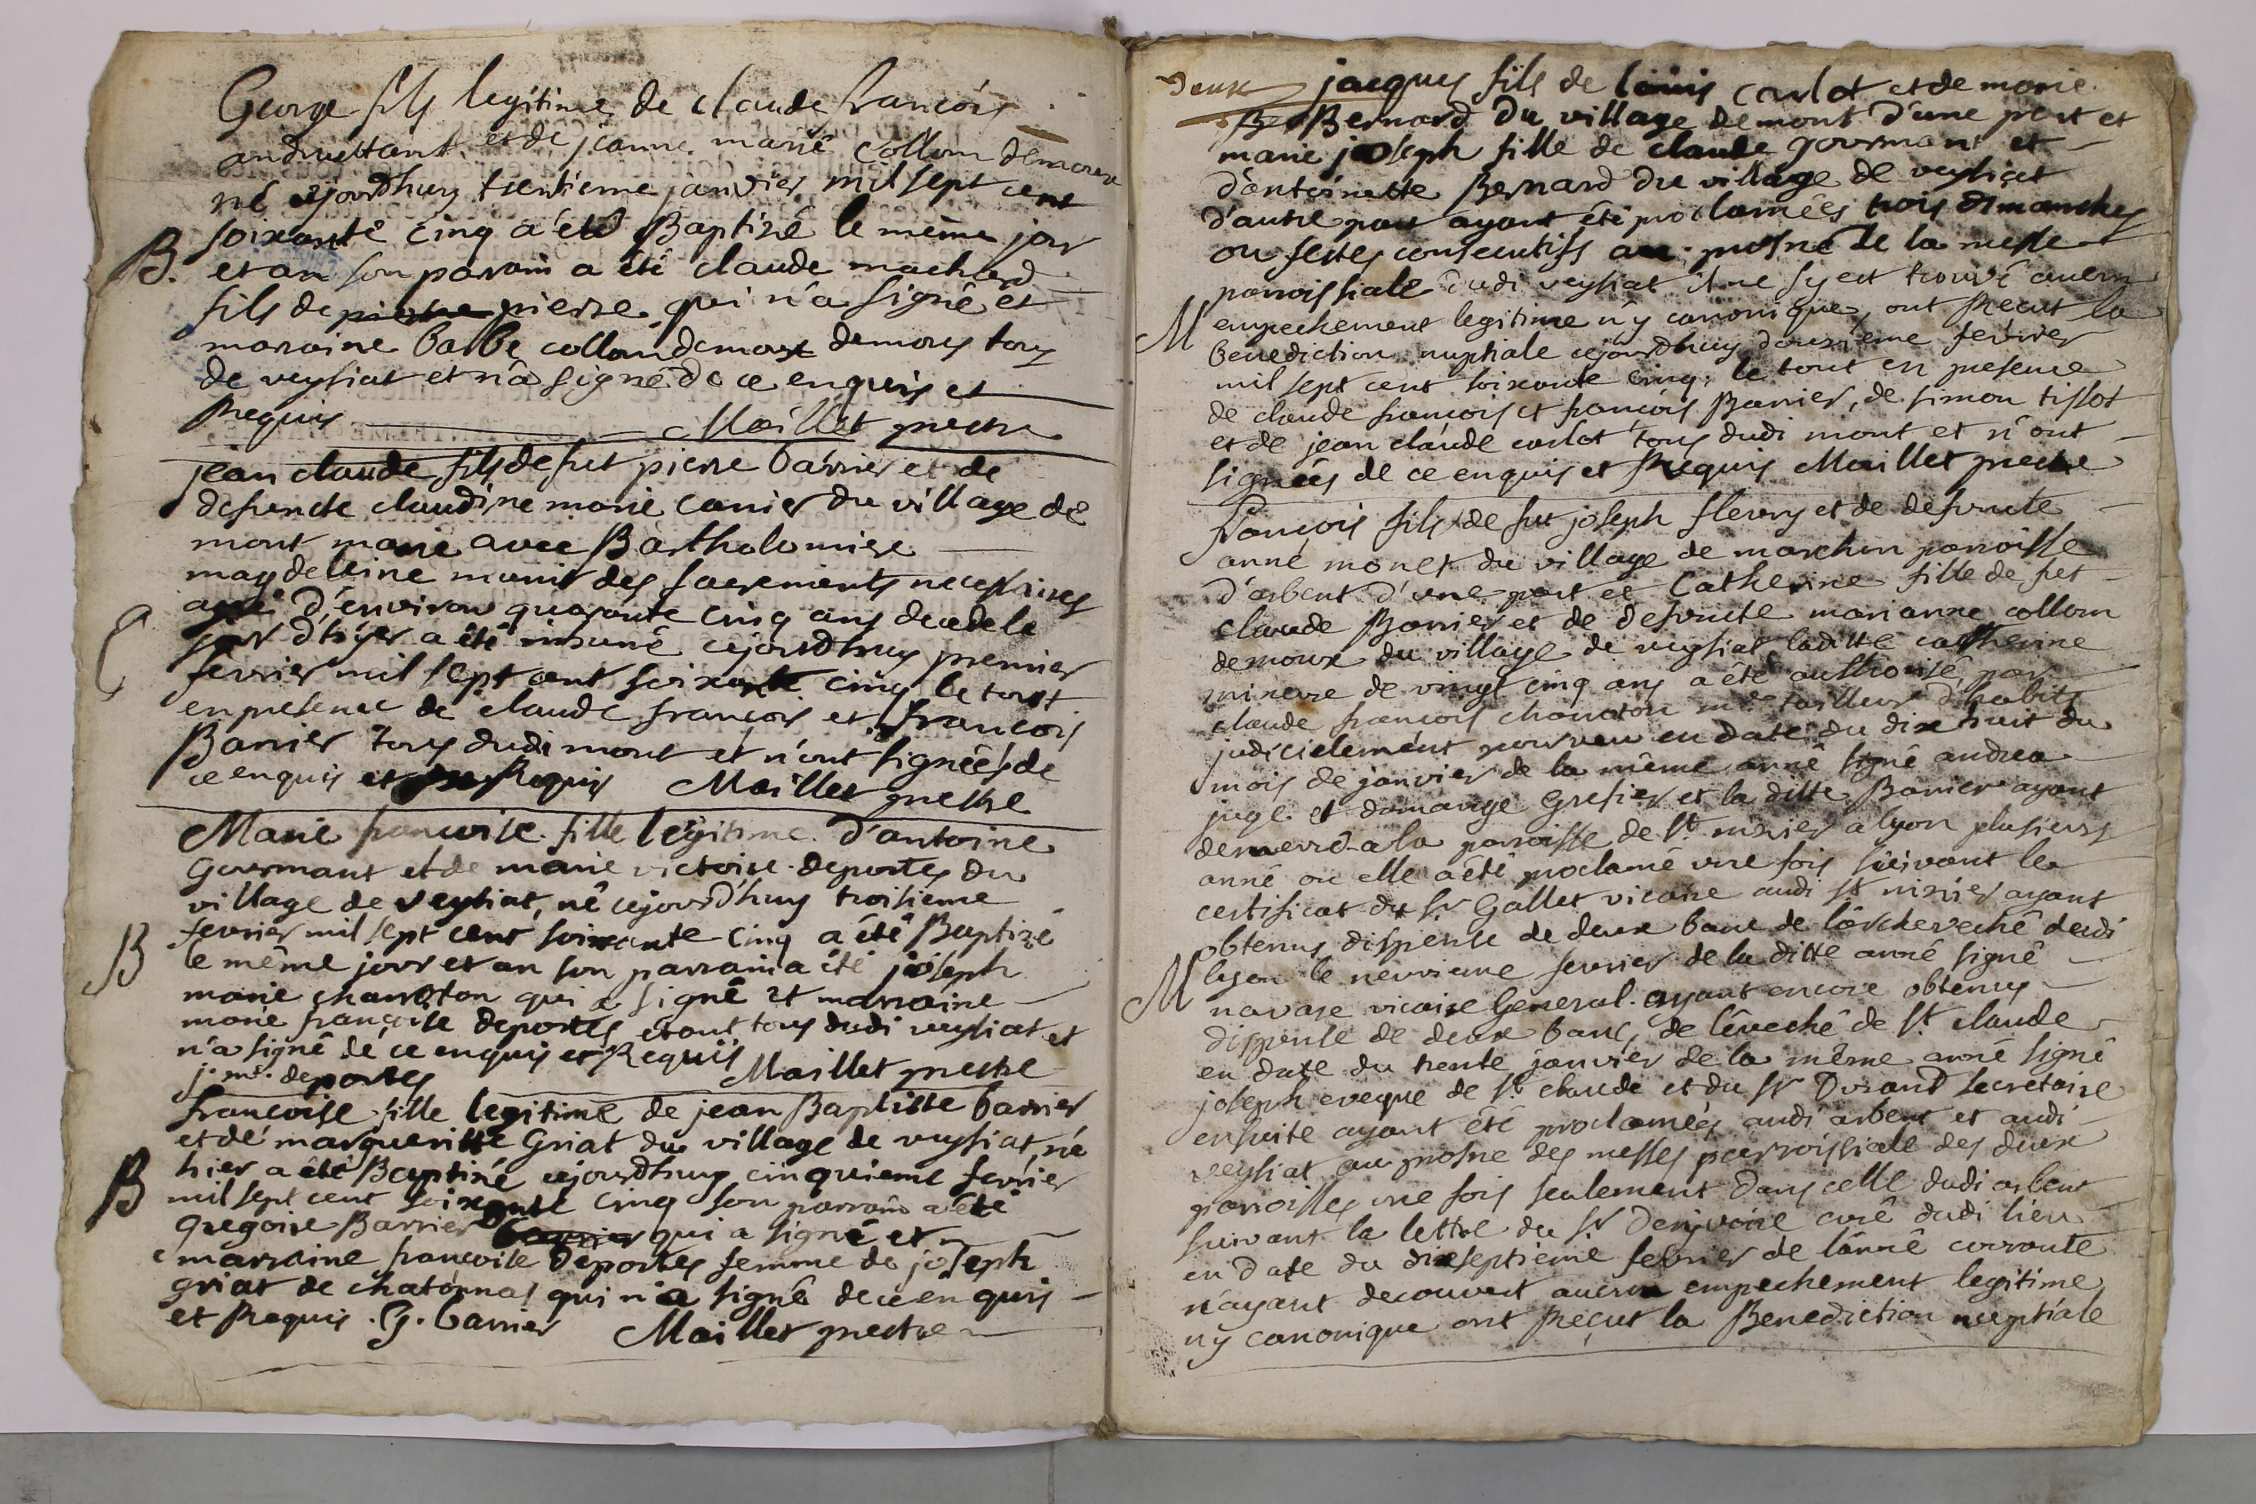 George fils legitime de claude francois
andruettant et de jeanne marie Collom demoux
né cejourdhuy trentieme janvier mil sept cent
soixante cinq a été Baptizé le même jour
B. et an son parain a été claude machard
fils de pierre pierre qui n'a signé et
maraine barbe collom demoux demoux tous
de veysiat et n'a signé de ce enquis et
Requis Maillet prestre
jean claude fils de fut pierre barrier et de
defuncte claudine marie carrier du village de
mont marie avec Bartholomiere
magdeleine munit des sacrements necessaires
agé d'environ quarante cinq ans decede le
jour d'hyer a été inhumé cejourdhuy premier
fevrier mil sept cent soixante cinq le tout
en presence de claude françois et françois
Barrier tous dudi mont et n'ont signées de
ce enquis et Requis Maillet prestre
Marie francoise fille legitime d'antoine
Gourmant et de marie victoire deportes du
village de veysiat, né cejourd'huy troisieme
fevrier mil sept cent soixante cinq a été Baptizé
B le même jour et an son parrain a été joseph
marie chanoton qui a signé et marraine
marie françoise deportes etant tous dudi veysiat et
n'a signé de ce enquis et Requis
j. m. deportes Maillet prestre
francoise fille legitime de jean Baptiste barrier
et de margueritte Griat du village de veysiat, né
hier a été Baptizé cejourdhuy cinquieme fevrier
B mil sept cent soixante cinq son parrain a été
gregoire Barrier barrier qui a signé et
marraine françoise deportes femme de joseph
griat de chatonnas qui n'a signé de ce enquis
et Requis. G. barrier Maillet prestre
Deux jacques fils de louis carlot et de marie
Ber Bernard du village de mont d'une part et
marie joseph fille de claude gourmant et
d'antoinette Bernard du village de veysiat
d'autre part ayant été proclamées trois dimanches
ou festes consecutifs au prosne de la messe
parroissiale dudi veysiat il ne s'y est trouvé aucun
M empechement legitime n'y canonique, ont Recut la
benediction nuptiale cejourdhuy douzieme fevrier
mil sept cent soixante cinq, le tout en presence
de claude francois et françois Barrier, de simon tissot
et de jean claude carlot tous dudi mont et n'ont
signées de ce enquis et Requis Maillet prestre
François fils de fut joseph fleury et de defuncte
anne monet du village de marchon paroisse
d'arbent d'une part et Catherine fille de fut
claude Barrier et de defuncte marianne collom
demoux du village de veysiat laditte catherine
mineure de vingt cinq ans a été authorisé par
claude françois chanoton mre tailleur d'habits
judicielement pourveu en date du dix huit du
mois de janvier de la même anné signé andrea
juge et domange Grefier et la ditte Barrier ayant
demeuré a la paroisse de St. nizier a lyon plusieurs
anné ou elle a été proclamé une fois suivant le
certificat du Sr Gallet vicaire audi St nizier ayant
obtenus dispense de deux banc de l'archeveché dudi
M lyon le neuvieme fevrier de la ditte anné signé
navare vicaire General. ayant encore obtenus
dispense de deux banc, de l'êveché de St. claude
en date du trente janvier de la même anné signé
joseph eveque de St. claude et du Sr Durand secretaire
ensuite ayant été proclamées audi arbent et audi
veysiat au prosne des messes parroissiale des deux
paroisses une fois seulement dans celle dudi arbent
suivant la lettre du Sr curé dudi lieu
en date du dixseptieme fevrier de l'anné courante
n'ayant decouvert aucun empechement legitime
ny canonique ont Reçut la Benediction nuptiale